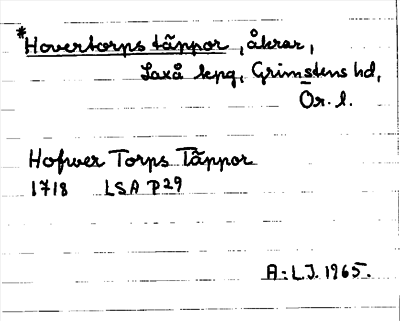 *Hovertorps täppor, åkrar,
Laxå kpg, Grimstens hd,
Ör. l.
Hofwer Torps Täppor
1718 LSA P29
A:L.J. 1965.